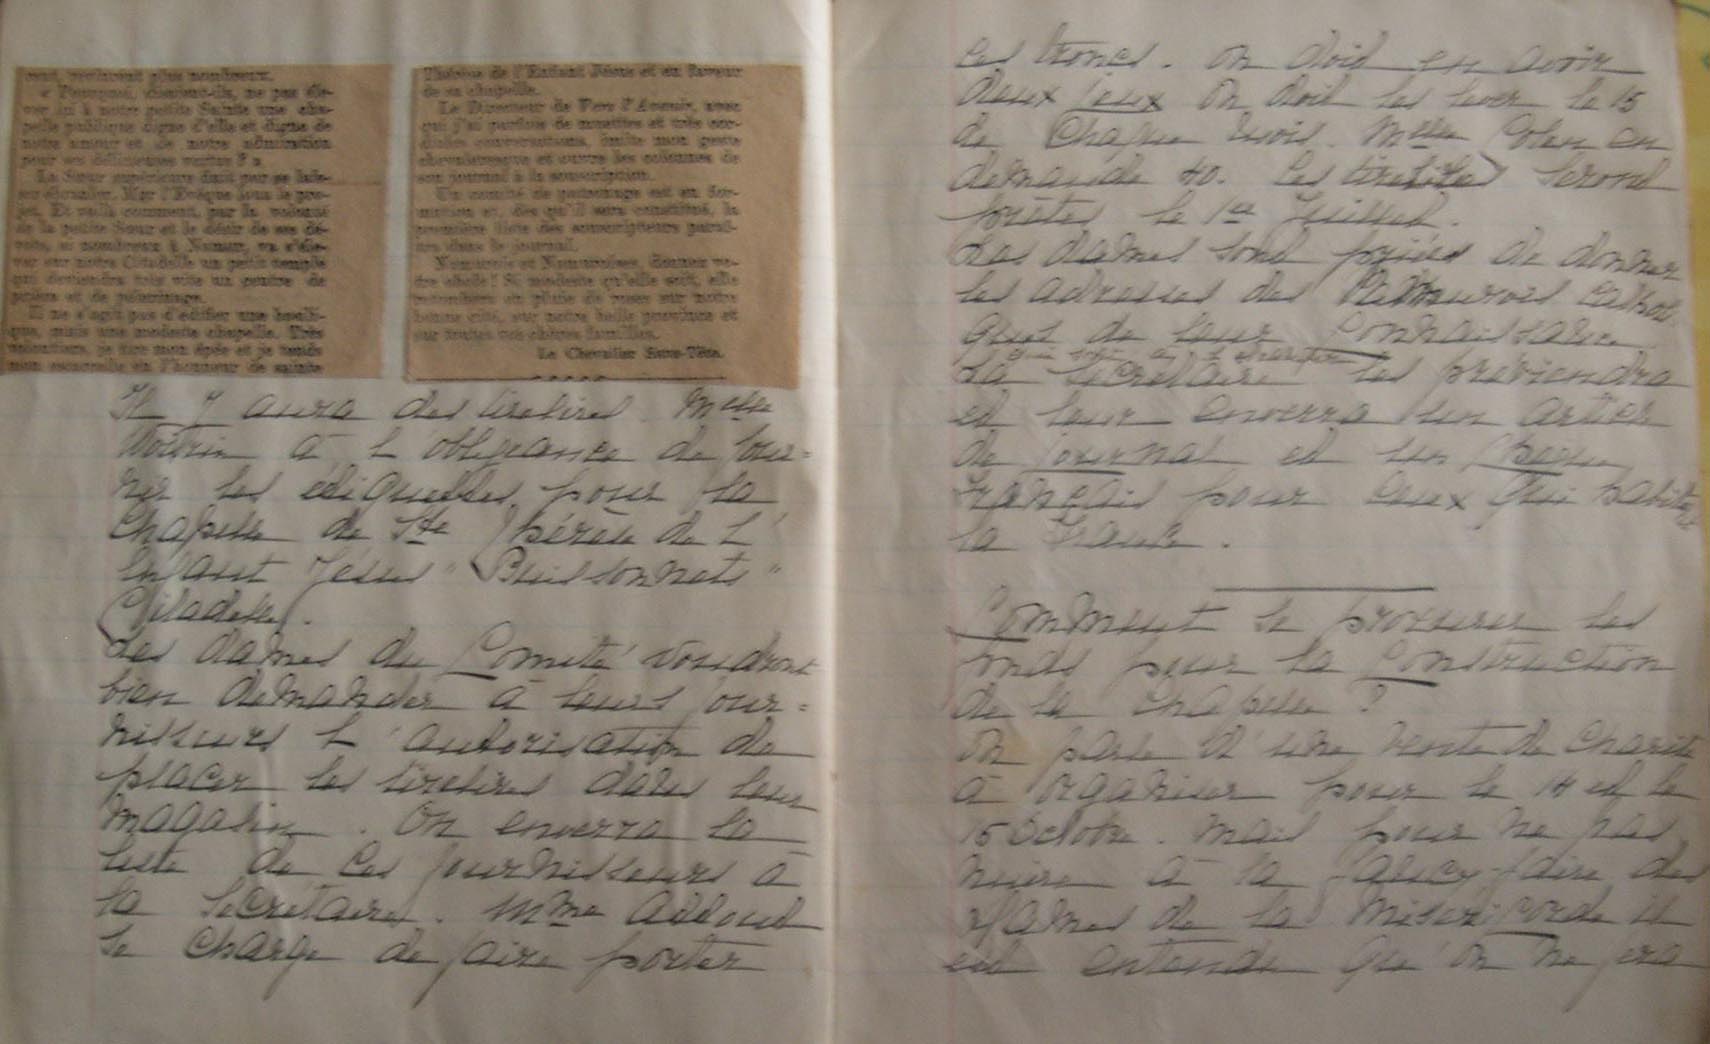 vent, revinrent plus nombreux.
« Pourquoi, disaient-ils, ne pas éle-
ver ici à notre petite Sainte une cha-
pelle publique digne d'elle et digne de
notre amour et de notre admiration
pour ses délicieuses vertus ? »
La Sœur supérieure finit par se lais-
ser ébranler. Mgr l'Evêque loua le pro-
jet. Et voilà comment, par la volonté
de la petite Sœur et le désir de ses dé-
vots, si nombreux à Namur, va s'éle-
ver sur notre Citadelle un petit temple
qui deviendra très vite un centre de
prière et de pèlerinage.
Il ne s'agit pas d'édifier une basili-
que, mais une modeste chapelle. Très
volontiers, je tire mon épée et je tends
mon escarcelle en l'honneur de sainte
Thérèse de l'Enfant Jésus et en faveur
de sa chapelle.
Le Directeur de Vers l'Avenir, avec
qui j'ai parfois de muettes et très cor-
diales conversations, imite mon geste
chevaleresque et ouvre les colonnes de
son journal à la souscription.
Un comité de patronage est en for-
mation et, dès qu'il sera constitué, la
première liste des souscripteurs paraî-
tra dans le journal.
Namurois et Namuroises, donnez vo-
tre obole ! Si modeste qu'elle soit, elle
retombera en pluie de roses sur notre
bonne cité, sur notre belle province et
sur toutes vos chères familles.
Le Chevalier Sans-Tête.
Il y aura des tirelires. Melle
à l'obligeance de four=
nir les étiquettes pour la
Chapelle de Ste Thérèse de l'
Enfant Jésus " Buissonnets "
Citadelle.
Les dames du Comité voudront
bien demander à leurs four=
nisseurs l'autorisation de
placer les tirelires dans leur
magasin. On enverra la
liste de ces fournisseurs à
la Secrétaire. Mme
se charge de faire porter
ces troncs. On doit en avoir
deux jeux On doit les lever le 15
de Chaque mois. Melle en
demande 40. Les tirelires seront
prêtes le 1er Juillet.
Les dames sont priées de donner
les adresses des Namurois catholi-
ques de leur Connaissance
qui sont à l'étranger
La Secrétaire les préviendra
et leur enverra un article
de journal et un chèque
Français pour ceux qui habitent
la France.
Comment se procurer les
fonds pour la Construction
de la Chapelle ?
On parle d'une vente de Charité
à organiser pour le 14 et le
15 Octobre. Mais pour ne pas
nuire à la fancy-faire des
Dames de la Miséricorde il
est entendu qu'on ne fera